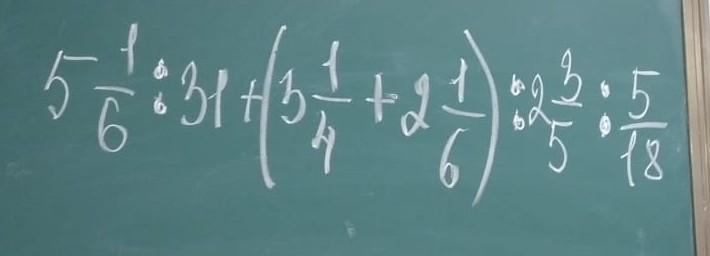 5 1/6 : 31 + (3 1/4 + 2 1/6) : 2 3/5 : 5/18